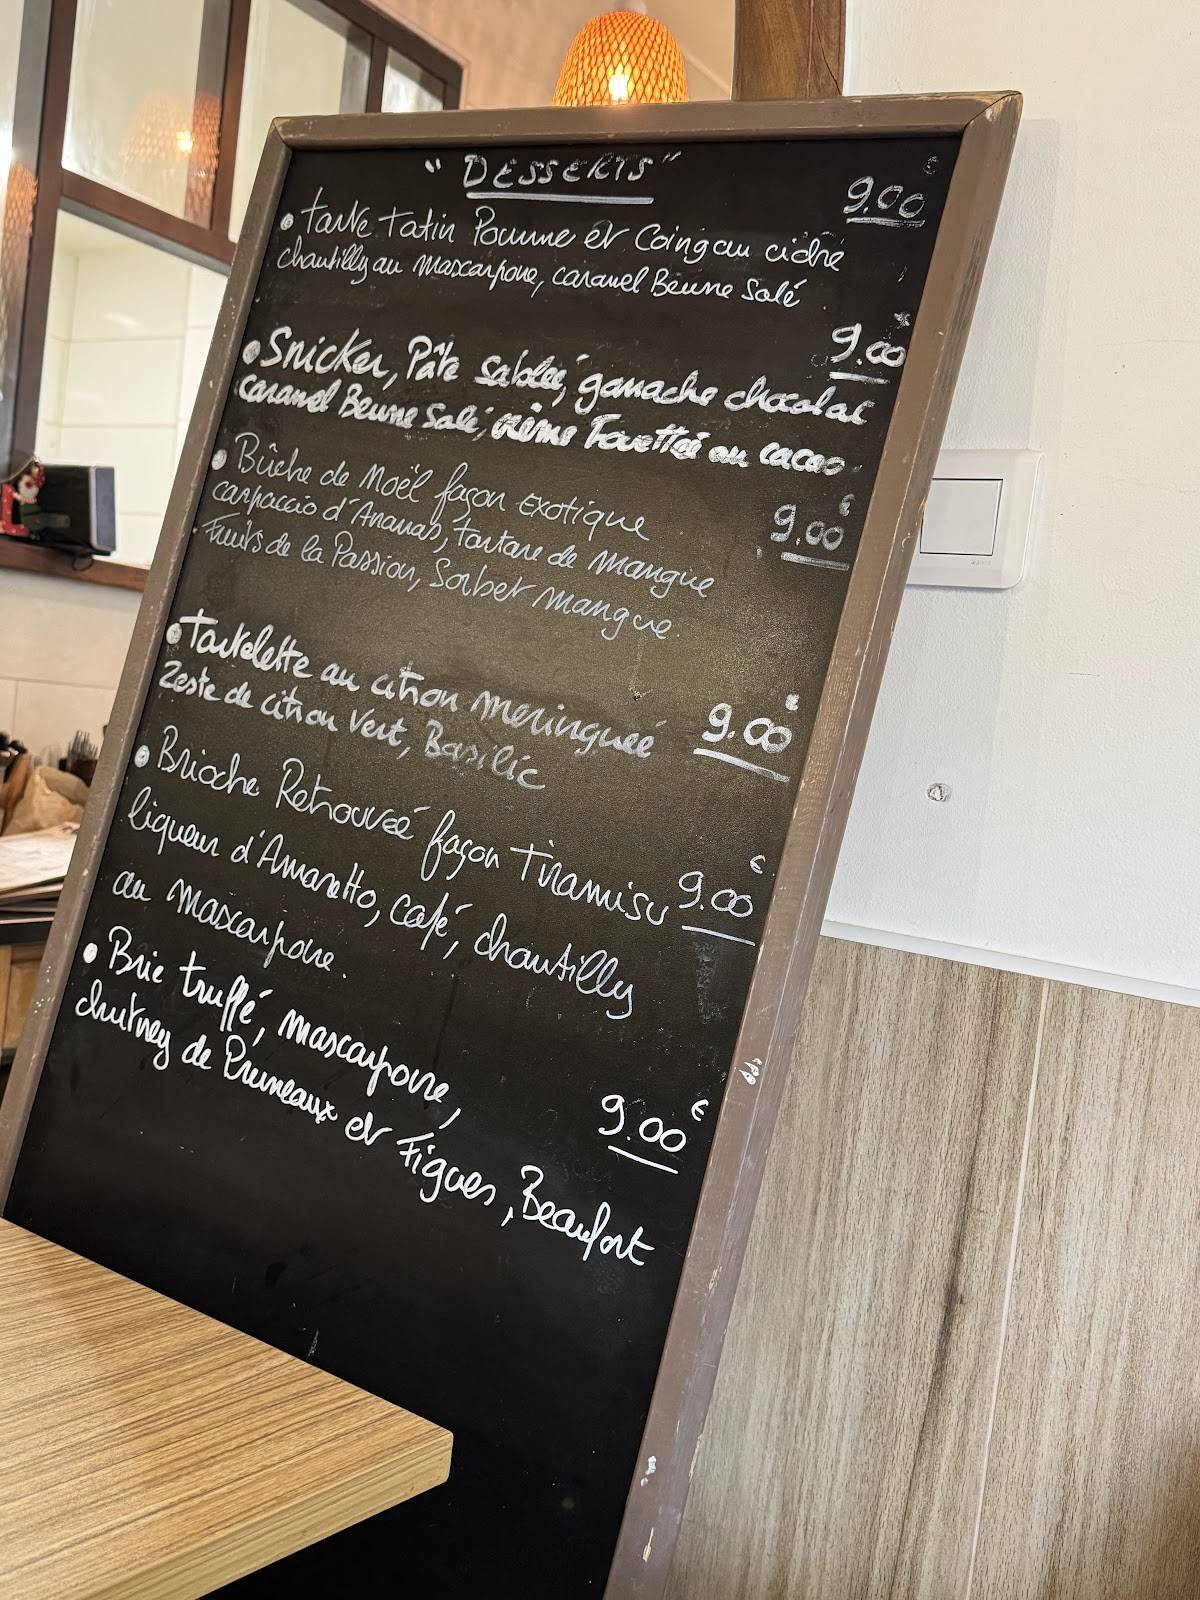 " DESSERTS "
• Tarte Tatin Pomme et Coing au cidre 9,00 €
chantilly au Mascarpone, caramel Beurre Salé
• Snicker, Pâte Sablée, ganache chocolat 9.00 €
caramel Beurre Salé, crème Fouettée au cacao.
• Bûche de Noël façon Exotique 9.00 €
carpaccio d'Ananas, tartare de mangue
Fruits de la Passion, Sorbet mangue.
• Tartelette au citron meringuée 9.00 €
Zeste de citron Vert, Basilic
• Brioche Retrouvée façon Tiramisu 9.00 €
liqueur d'Amaretto, café, chantilly
au mascarpone.
• Brie truffé, mascarpone, 9.00 €
chutney de Pruneaux et Figues, Beaufort